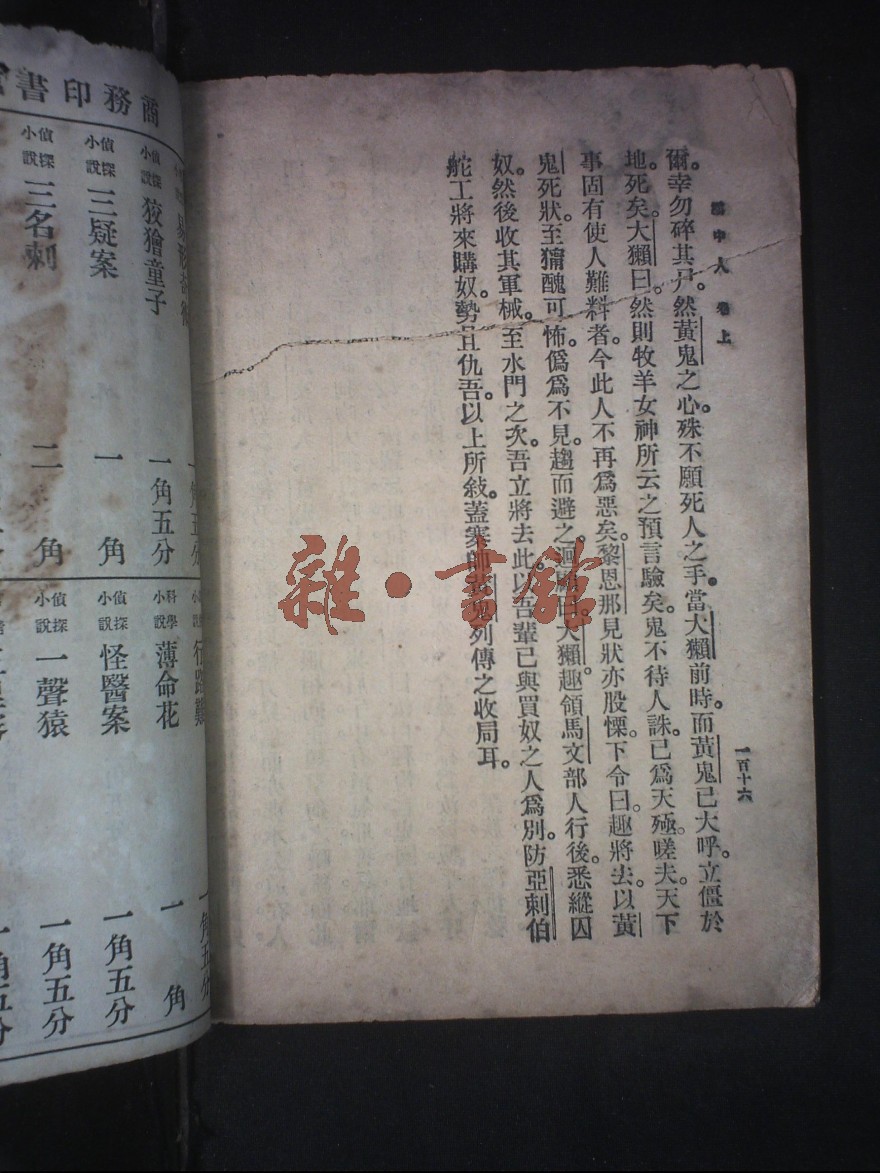 中人 卷上
爾。幸勿碎其尸。然黃鬼之心。殊不願死人之手。當大獺前時。而黃鬼已大呼。立僵於
地。死矣。大獺曰。然則牧羊女神所云之預言驗矣。鬼不待人誅。已為天殛。嗟夫。天下
事固有使人難料者。今此人不再為惡矣。黎恩那見狀亦股慄。下令曰。趣將去。以黃
鬼死狀。至獰醜可怖。僞為不見。趨而避之。迴顧曰。大獺趣領馬文部人行後。悉縱囚
奴。然後收其軍械。至水門之次。吾立將去此。以吾輩已與買奴之人為別。防亞剌伯
舵工將來購奴。勢且仇吾。以上所敍。蓋寒師黃鬼列傳之收局耳。
一百十六
雜·書館
商務印書
一角五分
偵探小說 狡獪童子 一角五分
偵探小說 三疑案 一角
偵探小說 三名刺 二角
行路難 一角五分
科學小說 薄命花 一角
偵探小說 怪醫案 一角五分
偵探小說 一聲猿 一角五分
一角五分